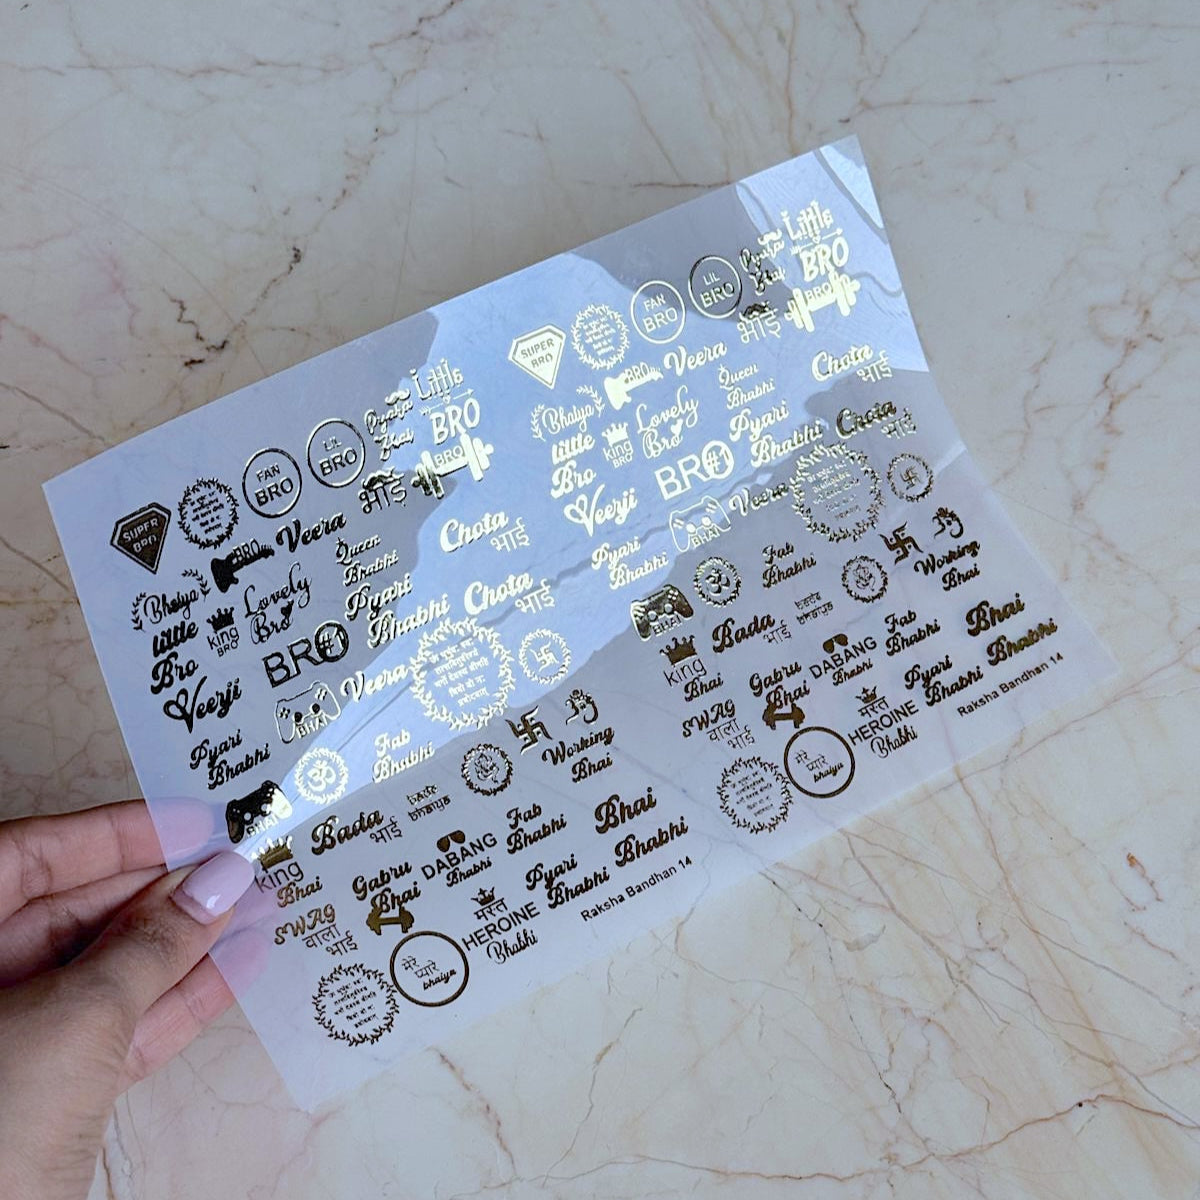 Little
BRO
Pyara
Bhai
LIL
BRO
FAN
BRO
SUPER
BRO
BRO
भाई
BRO
Veera
Bhaiya
little
Bro
king
BRO
Lovely
Bro
Queen
Bhabhi
Chota
भाई
Pyari
Bhabhi
BRO#1
Veerji
Chota
भाई
BHAI
Veera
Pyari
Bhabhi
ॐ
Fab
Bhabhi
Working
Bhai
BHAI
king
Bhai
Bada
भाई
bade
bhaiya
SWAG
वाला
भाई
Gabru
Bhai
DABANG
Bhabhi
Fab
Bhabhi
Bhai
Bhabhi
Pyari
Bhabhi
मेरे
प्यारे
bhaiya
मस्त
HEROINE
Bhabhi
Raksha Bandhan 14
Little
BRO
Pyara
Bhai
LIL
BRO
FAN
BRO
SUPER
BRO
BRO
भाई
BRO
Veera
Bhaiya
little
Bro
king
BRO
Lovely
Bro
Queen
Bhabhi
Chota
भाई
Pyari
Bhabhi
BRO#1
Veerji
Chota
भाई
BHAI
Veera
Pyari
Bhabhi
ॐ
Fab
Bhabhi
Working
Bhai
BHAI
king
Bhai
Bada
भाई
bade
bhaiya
SWAG
वाला
भाई
Gabru
Bhai
DABANG
Bhabhi
Fab
Bhabhi
Bhai
Bhabhi
Pyari
Bhabhi
मेरे
प्यारे
bhaiya
मस्त
HEROINE
Bhabhi
Raksha Bandhan 14